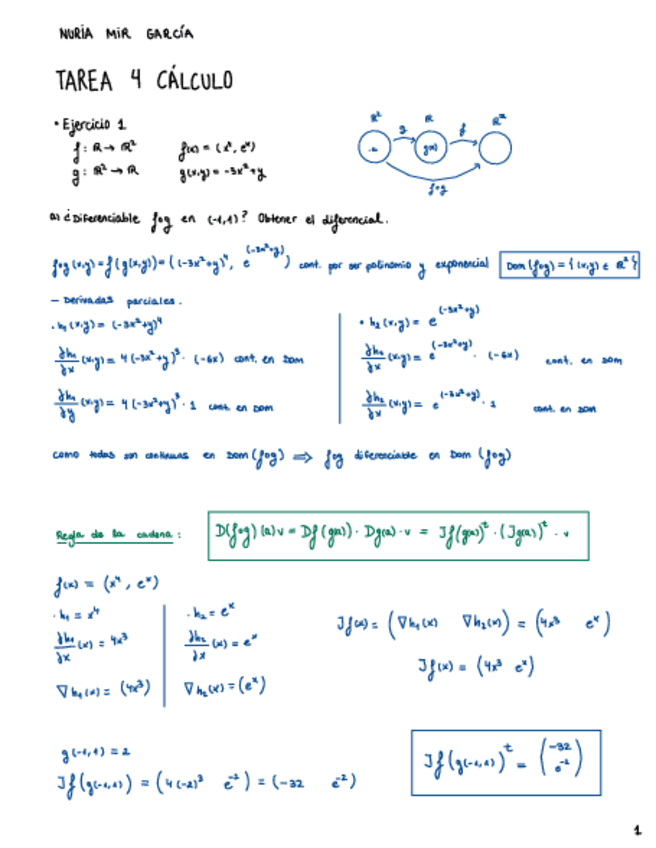 NURIA MIR GARCÍA
TAREA 4 CÁLCULO
• Ejercicio 1
f: ℝ → ℝ² f(x) = (x⁴, eˣ)
g: ℝ² → ℝ g(x,y) = -3x²+y
ℝ² ℝ ℝ²
g f
g(x)
f∘g
a) ¿Diferenciable f∘g en (-1,1)? Obtener el diferencial.
f∘g (x,y) = f(g(x,y)) = ((-3x²+y)⁴, e^(-3x²+y)) cont. por ser polinomio y exponencial Dom(f∘g) = {(x,y) ∈ ℝ²}
- Derivadas parciales.
· h₁(x,y) = (-3x²+y)⁴
∂h₁/∂x (x,y) = 4(-3x²+y)³ · (-6x) cont. en Dom
∂h₁/∂y (x,y) = 4(-3x²+y)³ · 1 cont. en Dom
• h₂(x,y) = e^(-3x²+y)
∂h₂/∂x (x,y) = e^(-3x²+y) · (-6x) cont. en Dom
∂h₂/∂x (x,y) = e^(-3x²+y) · 1 cont. en Dom
como todas son continuas en Dom(f∘g) ⟹ f∘g diferenciable en Dom (f∘g)
Regla de la cadena: D(f∘g)(a)v = Df(g(a)) · Dg(a) · v = Jf(g(a))ᵗ · (Jg(a))ᵗ · v
f(x) = (x⁴, eˣ)
· h₁ = x⁴
∂h₁/∂x (x) = 4x³
∇h₁(x) = (4x³)
· h₂ = eˣ
∂h₂/∂x (x) = eˣ
∇h₂(x) = (eˣ)
Jf(x) = (∇h₁(x) ∇h₂(x)) = (4x³ eˣ)
Jf(x) = (4x³ eˣ)
g(-1,1) = 2
Jf(g(-1,1)) = (4(-2)³ e⁻²) = (-32 e⁻²)
Jf(g(-1,1))ᵗ = (-32 e⁻²)
1